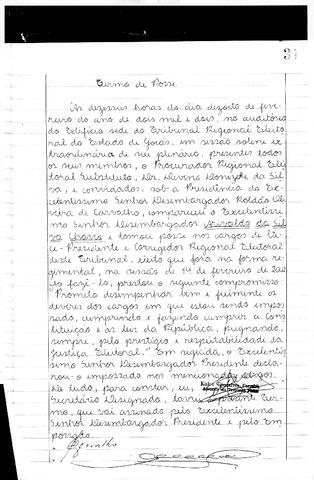 31
Termo de Posse
Às dezesseis horas do dia dezoito de feve-
reiro do ano de dois mil e dois, no auditório
do Edifício sede do Tribunal Regional Eleito-
ral do Estado de Goiás, em sessão solene ex-
traordinária de seu plenário, presentes todos
os seus membros, o Procurador Regional Elei-
toral Substituto, Dr. da Sil-
va, e convidados, sob a Presidência do Ex-
celentíssimo Senhor Desembargador Roldão Oli-
veira de Carvalho, compareceu o Excelentíssi-
mo Senhor Desembargador da Sil-
va e tomou posse nos cargos de Vi-
ce-Presidente e Corregedor Regional Eleitoral
deste Tribunal, eleito que fora na forma re-
gimental, na sessão de 14 de fevereiro de
Ao fazê-lo, prestou o seguinte compromisso:
"Prometo desempenhar bem e fielmente os
deveres dos cargos em que estou sendo empos-
sado, cumprindo e fazendo cumprir a Cons-
tituição e as leis da República, pugnando,
sempre, pelo prestígio e respeitabilidade da
Justiça Eleitoral." Em seguida, o Excelentís-
simo Senhor Desembargador Presidente decla-
rou-o empossado nos mencionados cargos.
De tudo, para constar, eu,
Secretário Designado, lavrei o presente Ter-
mo, que vai assinado pelo Excelentíssimo
Senhor Desembargador Presidente e pelo Em-
possado.